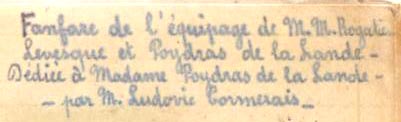 Fanfare de l'équipage de M.M. Rogatien
Levesque et Poydras de la Lande -
Dédiée à Madame Poydras de la Lande -
- par M. Ludovic Cormerais -